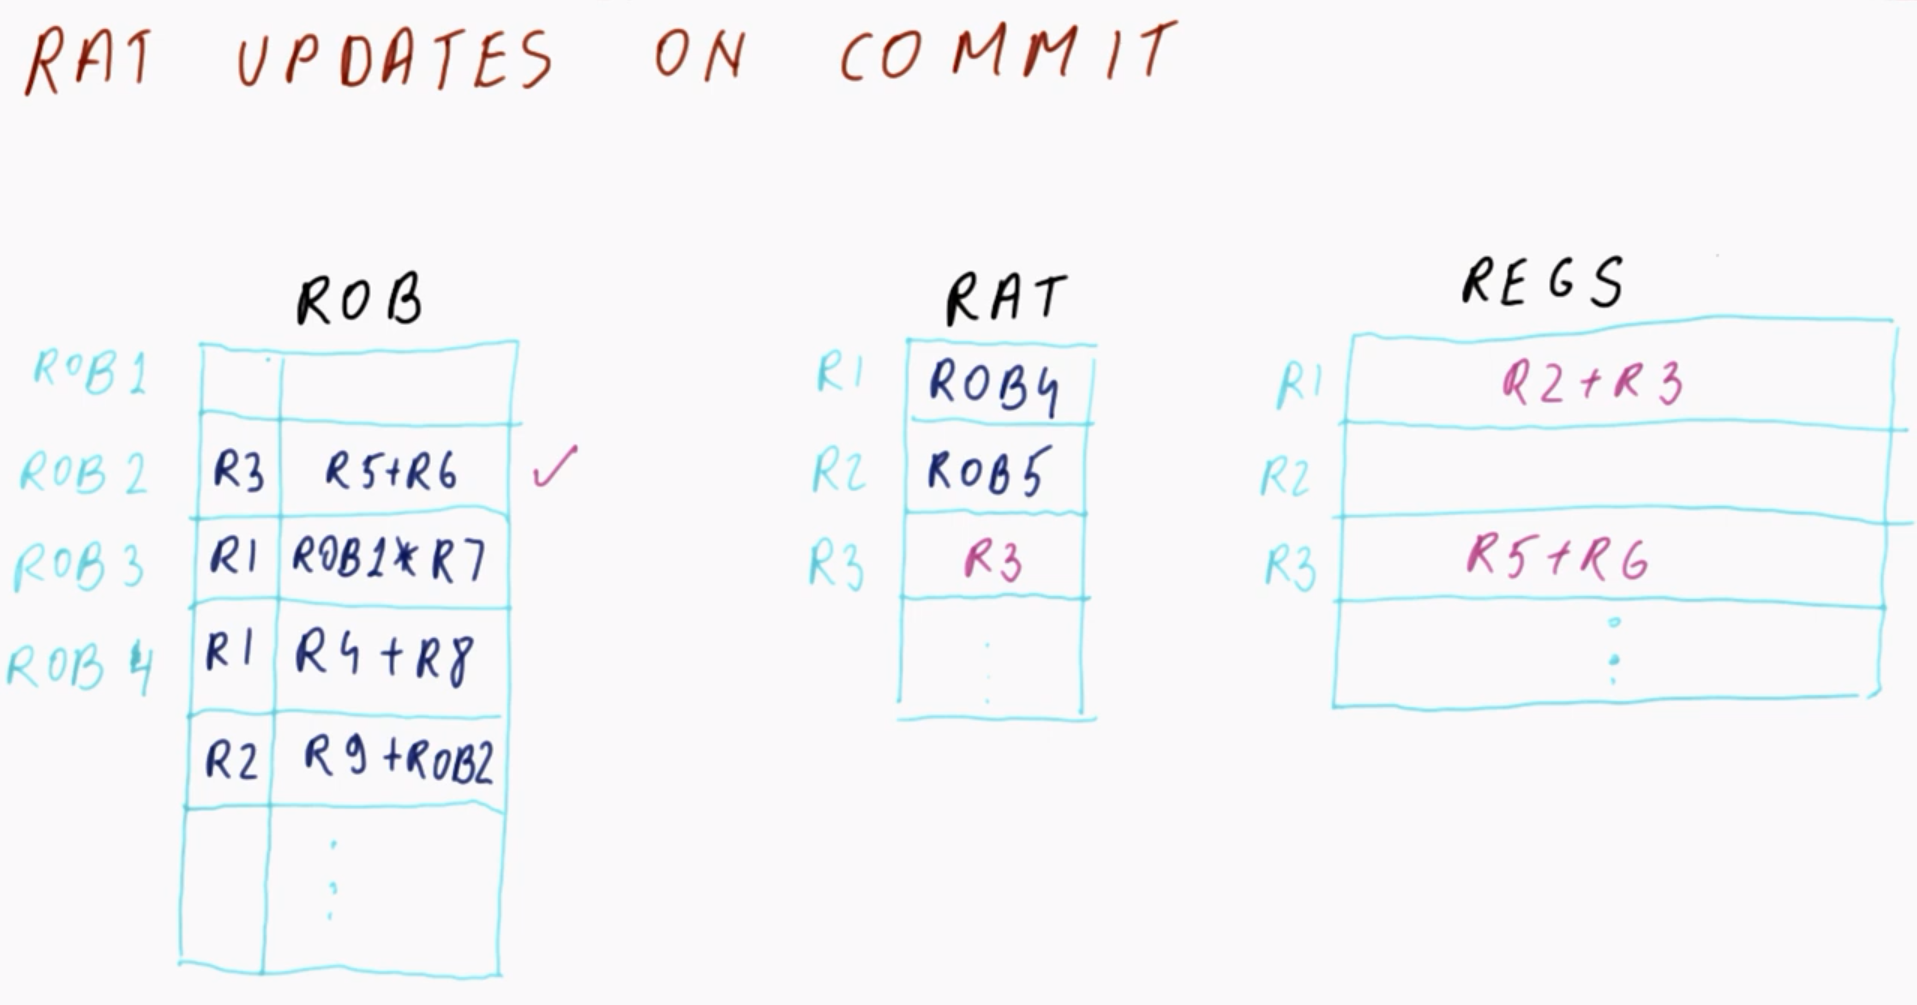 RAT UPDATES ON COMMIT
ROB
ROB1
ROB2 R3 R5+R6 ✓
ROB3 R1 ROB1*R7
ROB4 R1 R4+R8
R2 R9+ROB2
RAT
R1 ROB4
R2 ROB5
R3 R3
REGS
R1 R2+R3
R2
R3 R5+R6